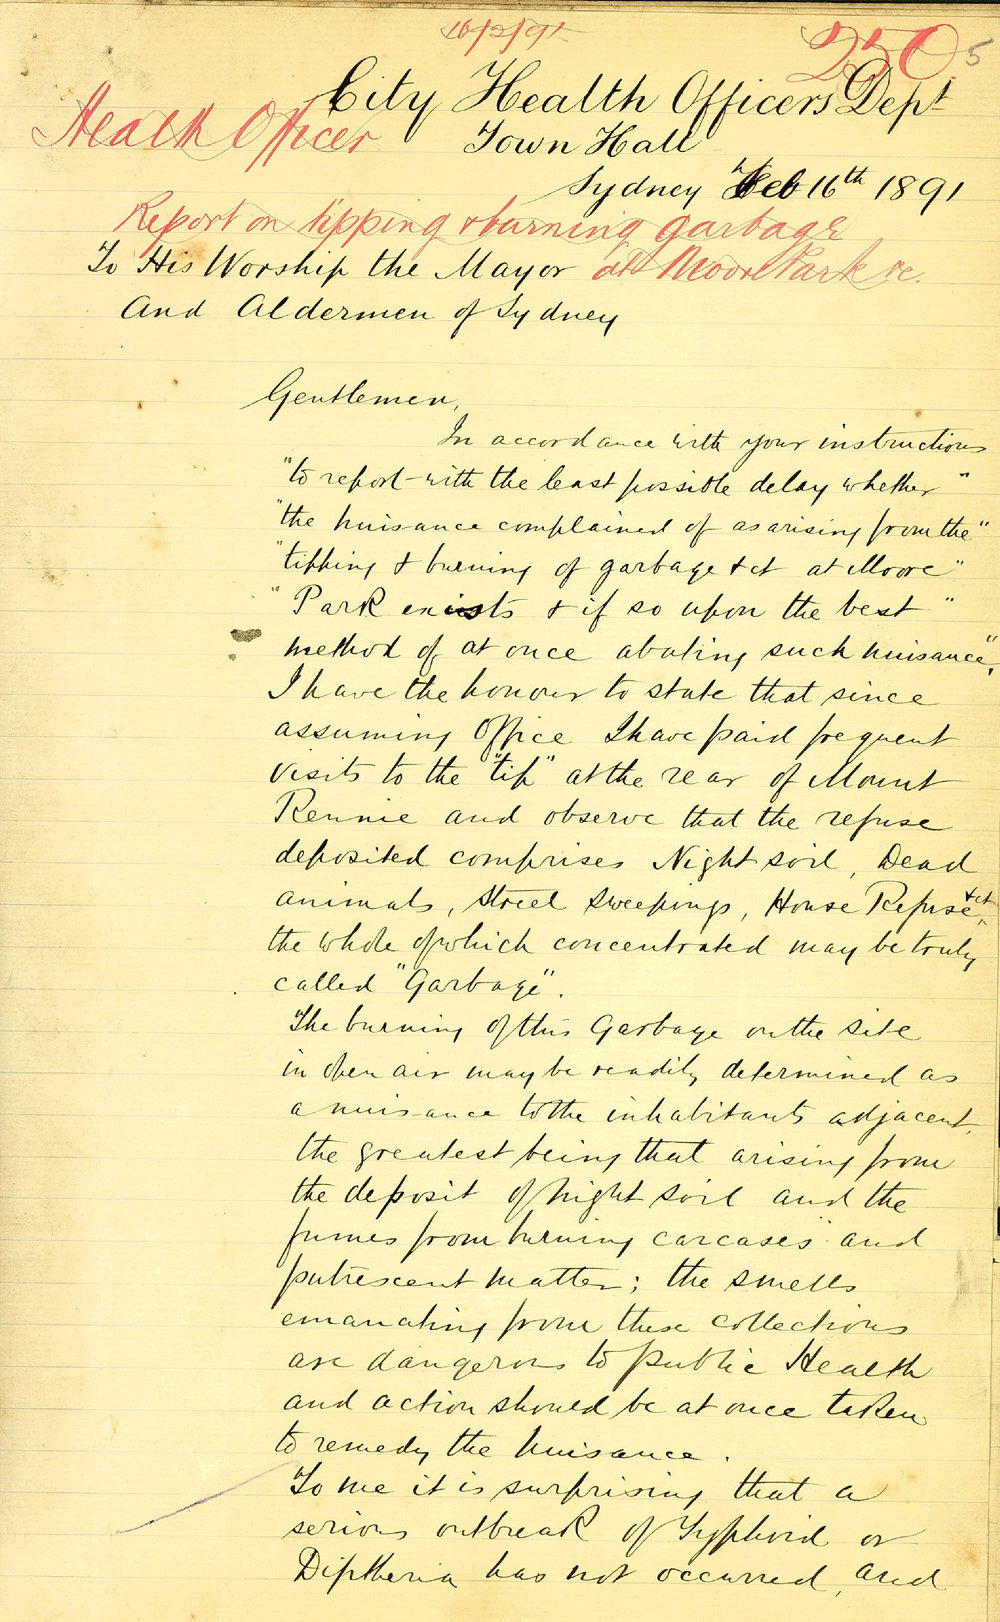 16/2/91
250 5
City Health Officers Dept
Health Officer
Town Hall
Sydney Feb 16th 1891
Report on tipping & burning garbage
To His Worship the Mayor at Moore Park &c.
And Aldermen of Sydney
Gentlemen,
In accordance with your instructions
"to report with the least possible delay whether"
"the nuisance complained of as arising from the"
"tipping & burning of garbage &ct at Moore"
"Park exists & if so upon the best"
method of at once abating such nuisance",
I have the honour to state that since
assuming Office I have paid frequent
visits to the "tip" at the rear of Mount
Rennie and observe that the refuse
deposited comprises Night soil, Dead
animals, Street Sweepings, House Refuse &ct,
the whole of which concentrated may be truly
called "Garbage".
The burning of this Garbage on the site
in open air may be readily determined as
a nuisance to the inhabitants adjacent,
the greatest being that arising from
the deposit of night soil and the
fumes from burning carcases and
putrescent matter; the smells
emanating from these collections
are dangerous to public Health
and action should be at once taken
to remedy the nuisance.
To me it is surprising that a
serious outbreak of Typhoid or
Diptheria has not occurred, and